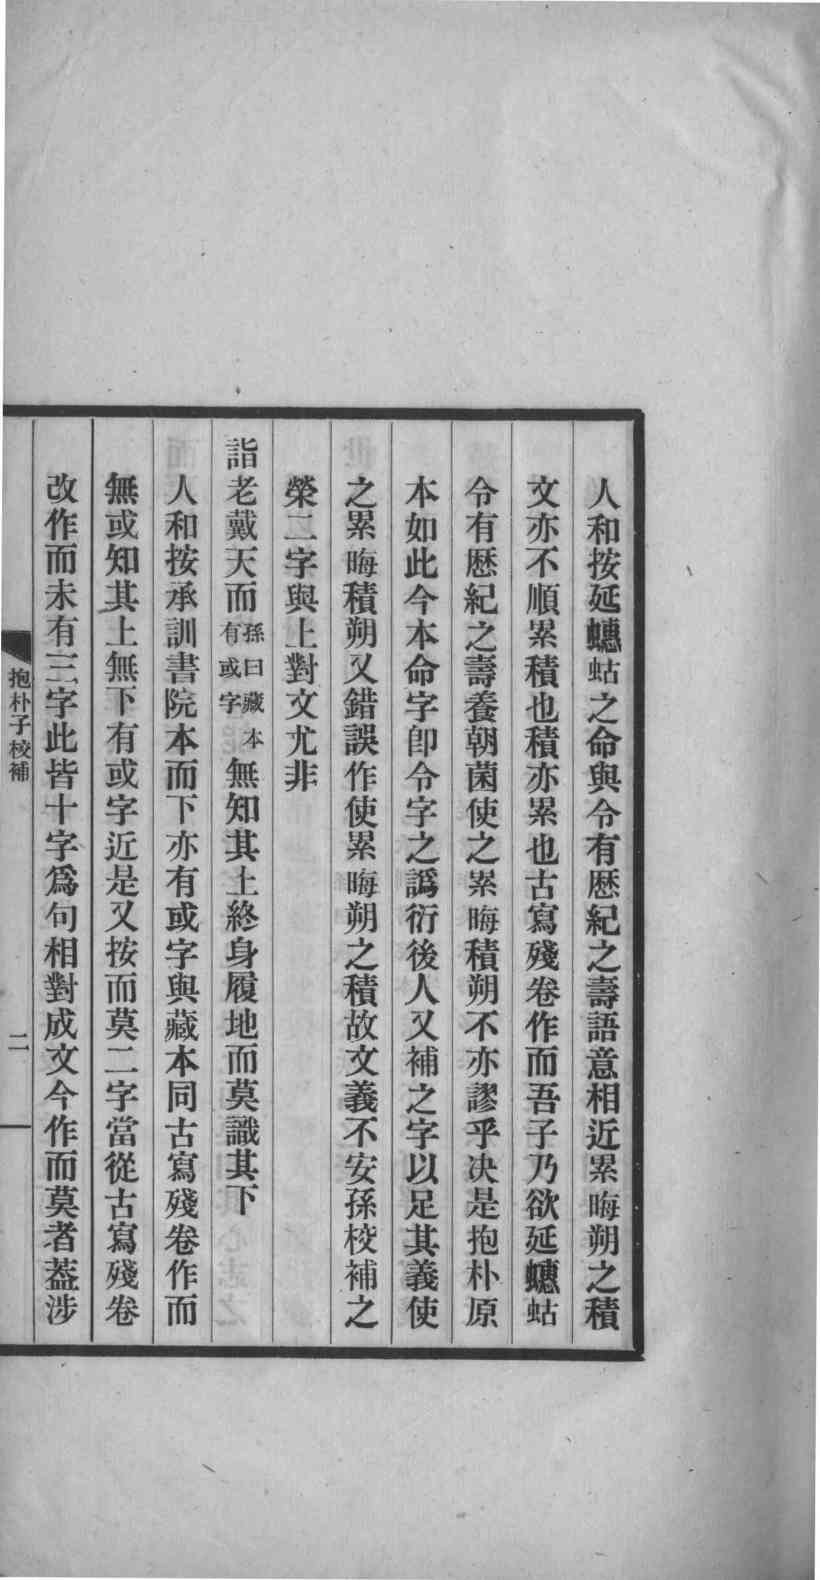 人和按延蟪蛄之命與令有歷紀之壽語意相近累晦朔之積
文亦不順累積也積亦累也古寫殘卷作而吾子乃欲延蟪蛄
令有歷紀之壽養朝菌使之累晦積朔不亦謬乎决是抱朴原
本如此今本命字卽令字之譌衍後人又補之字以足其義使
之累晦積朔又錯誤作使累晦朔之積故文義不安孫校補之
榮二字與上對文尤非
詣老戴天而孫曰藏本有或字無知其上終身履地而莫識其下
人和按承訓書院本而下亦有或字與藏本同古寫殘卷作而
無或知其上無下有或字近是又按而莫二字當從古寫殘卷
改作而未有三字此皆十字爲句相對成文今作而莫者蓋涉
抱朴子校補
二